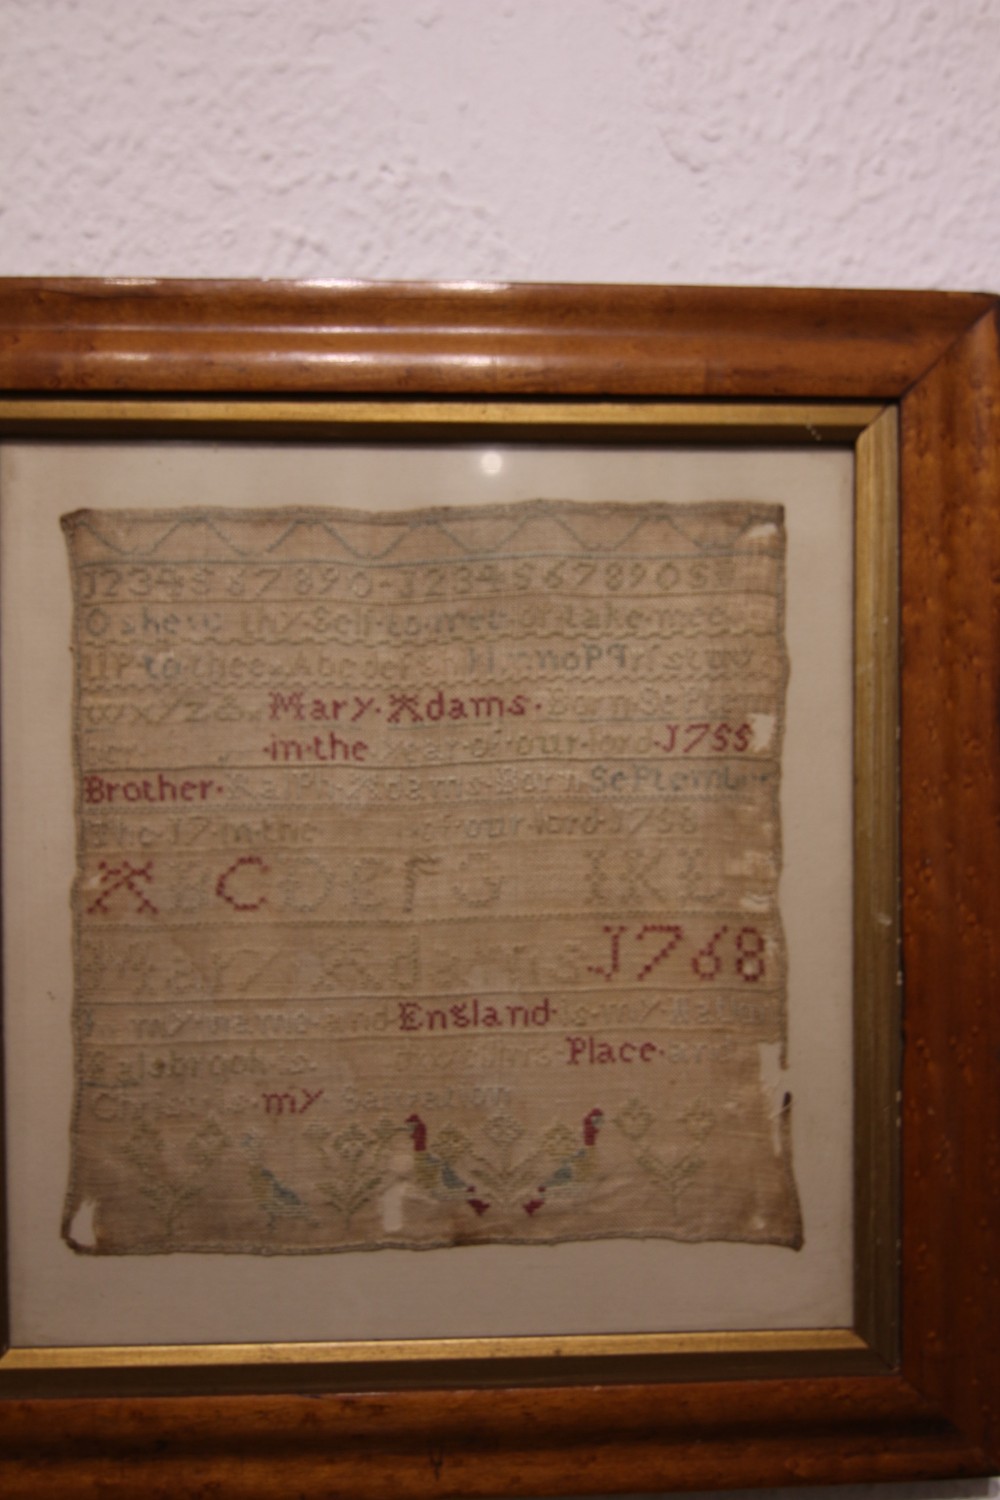 J234567890-J234567890S
O shew thy Self to mee or take mee
UP to thee Abcdef hiklmnoPqrfstuv
wx/z& Mary Adams Born Septem
ber in the year of our lord J755
Brother Ralph Adams Born September
The 17 in the of our lord J758
A B C D E F G I K L
Mary Adams J768
my name and England is my
Place and
Christ is my